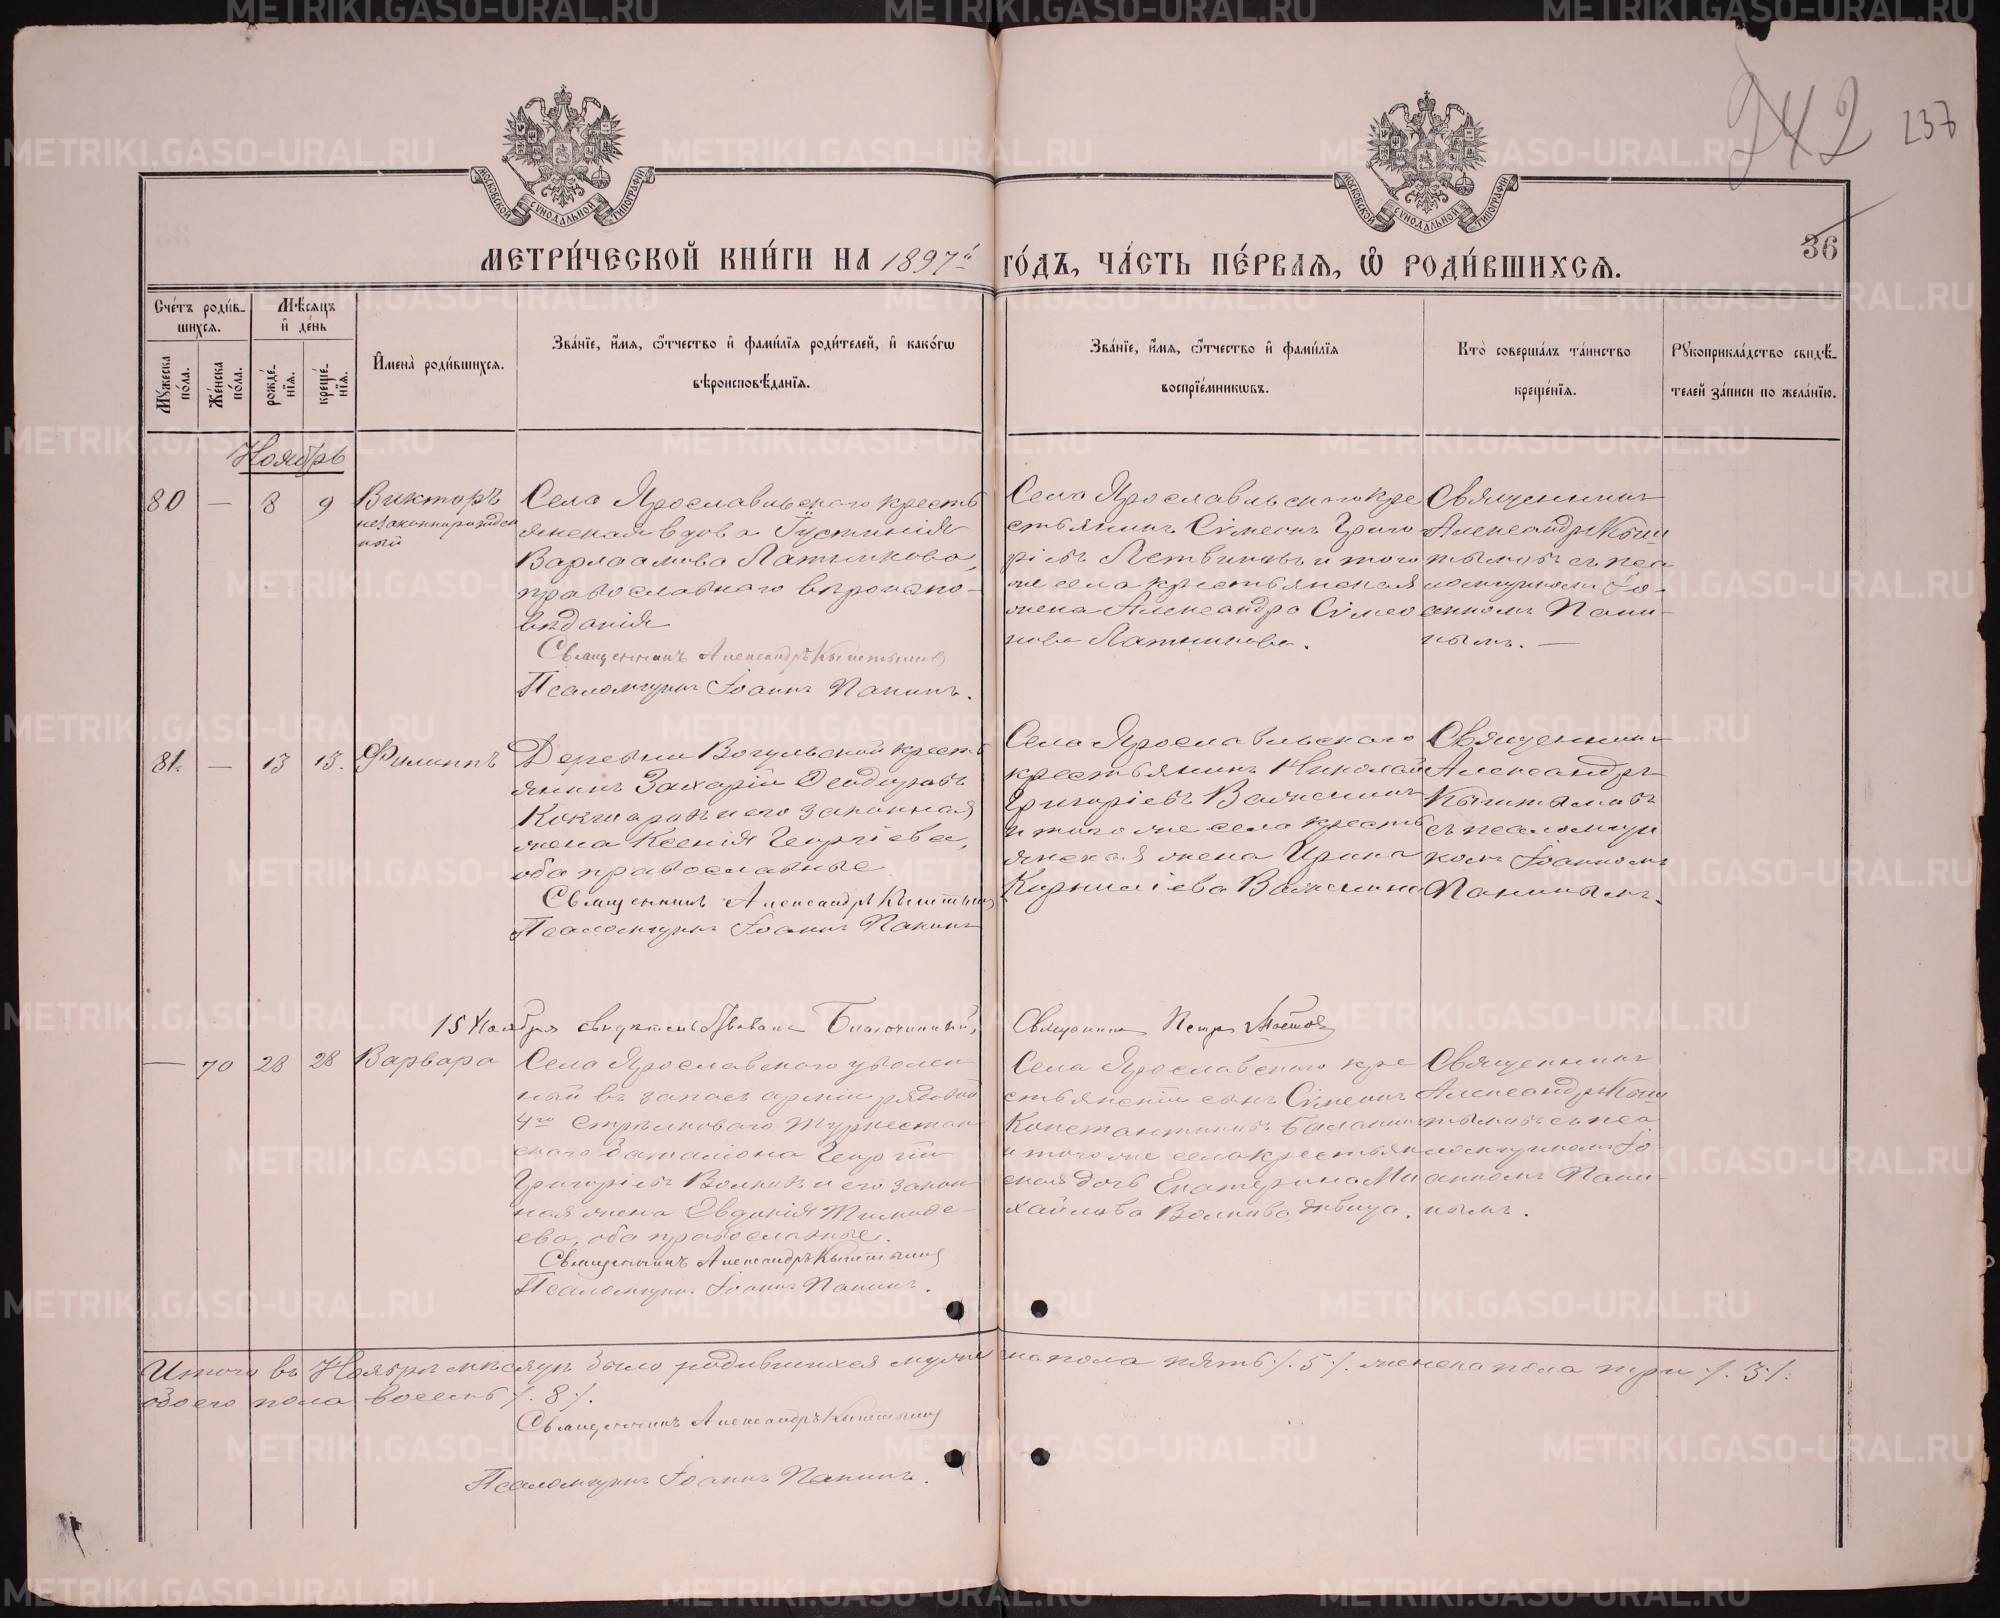 242
237
36
МОСКОВСКОЙ СѴНОДАЛЬНОЙ ТИПОГРАФІИ
МОСКОВСКОЙ СѴНОДАЛЬНОЙ ТИПОГРАФІИ
МЕТРИ́ЧЕСКОЙ КНИ́ГИ НА 1897й ГО́ДЪ, ЧА́СТЬ ПЕ́РВАЯ, Ѡ РОДИ́ВШИХСЯ.
Сче́тъ роди́в-
шихся.
Мꙋжеска по́ла.
Же́нска по́ла.
Мѣ́сяцъ и де́нь
рожде́нїя.
креще́нїя.
Имена̀ роди́вшихся.
Зва́нїе, и́мя, ѻ́тчество и фами́лїя роди́телей, и како́гѡ
вѣроисповѣ́данїя.
Зва́нїе, и́мя, ѻ́тчество и фами́лїя
воспрїе́мникѡвъ.
Кто̀ соверша́лъ та́инство
креще́нїя.
Рꙋкоприкла́дство свидѣ́-
телей за́писи по жела́нїю.
Ноябрь
80 — 8 9 Викторъ
незаконнорожден
ный
Села Ярославльского кресть
янская вдова Іустинія
Варлаамова Латникова,
православнаго вѣроиспо-
вѣданія
Священникъ Александръ Кыштымов
Псаломщикъ Іоаннъ Папинъ.
Села Ярославльского кре
стьянинъ Сѵмеонъ Григо
ріевъ Летвиновъ и того
же села крестьянская
жена Александра Сѵмео
нова Латникова.
Священникъ
Александръ Кыш
тымовъ съ пса
ломщикомъ Іо-
анномъ Папи-
нымъ. —
81. — 13 13. Филиппъ
Деревни Вогульской кресть
янинъ Захарій Ѳеодоровъ
Кокшаровъ и его законная
жена Ксенія Георгіева,
оба православные
Священникъ Александръ Кыштым
Псаломщикъ Іоаннъ Папинъ
Села Ярославльского
крестьянинъ Николай
Григоріевъ Важенинъ
и того же села кресть
янская жена Ирина
Корниліева Важенина
Священникъ
Александръ
Кыштымовъ
съ псаломщи
комъ Іоанномъ
Папинымъ.
15 Ноября свидѣтельствовалъ Благочинный, Священникъ Петр
— 70 28 28 Варвара
Села Ярославского уволен
ный въ запасъ арміи рядовой
4го Стрѣлковаго Туркестан
скаго баталіона Георгій
Григоріевъ Волковъ и его закон
ная жена Евдокія
ева, оба православные.
Священникъ Александръ Кыштымов
Псаломщикъ Іоаннъ Папинъ.
Села Ярославского кре
стьянскій сынъ Сѵмеонъ
Константиновъ Балакинъ
и того же села крестьян
ская дочь Екатерина Ми
хайлова Волкова, дѣвица.
Священникъ
Александръ Кыш
тымовъ съ пса
ломщикомъ Іо-
анномъ Папи-
нымъ.
Итого въ Ноябрѣ мѣсяцѣ было родившихся мужескаго пола пять /. 5 /. женска пола три /. 3 /.
обоего пола восемь /. 8 /.
Священникъ Александръ Кыштымов
Псаломщикъ Іоаннъ Папинъ.
METRIKI.GASO-URAL.RU